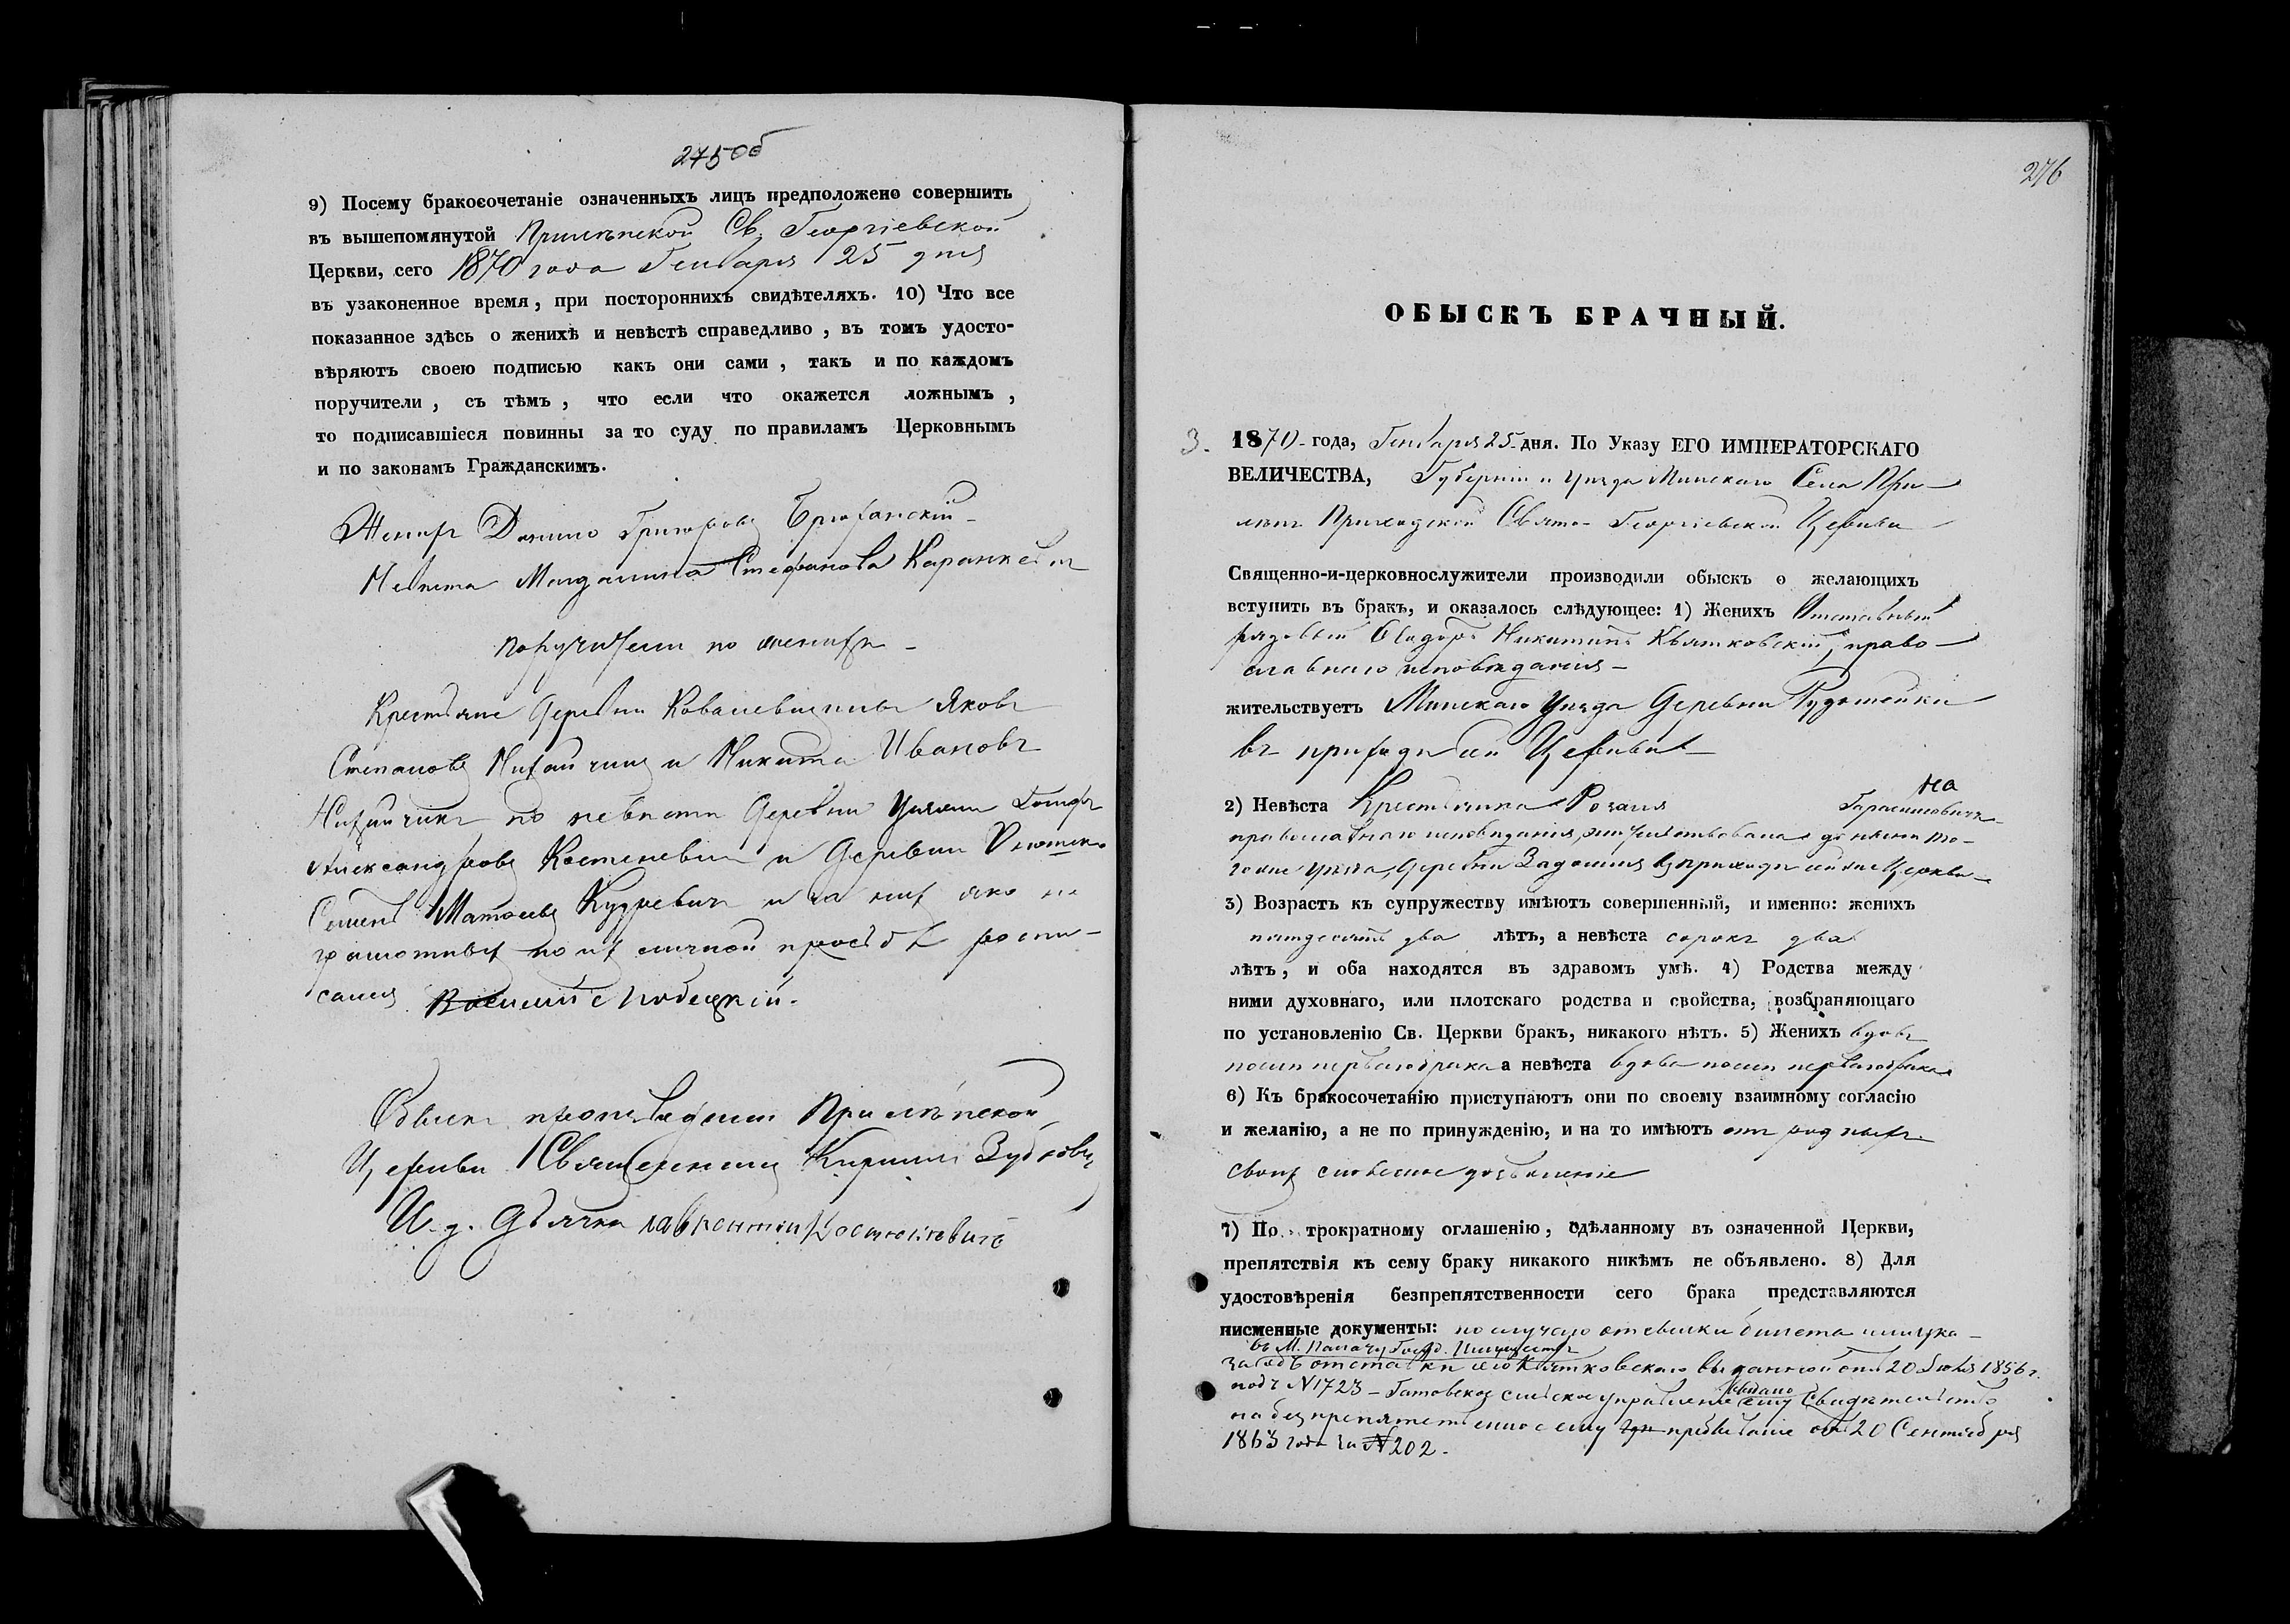 275об
9) Посему бракосочетаніе означенныхъ лицъ предположено совершить
въ вышепомянутой Прилѣпской Св. Георгіевской
Церкви, сего 1870 года Генваря 25 дня
въ узаконенное время, при постороннихъ свидѣтеляхъ. 10) Что все
показанное здѣсь о женихѣ и невѣстѣ справедливо, въ томъ удосто-
вѣряютъ своею подписью какъ они сами, такъ и по каждомъ
поручители, съ тѣмъ, что если что окажется ложнымъ,
то подписавшіеся повинны за то суду по правиламъ Церковнымъ
и по законамъ Гражданскимъ.
Женихъ Данило Григорьевъ
Невѣста Магдалина Стефанова
поручители по женихѣ
Крестьяне Деревни Ковалевщины Яковъ
Степановъ и Никита Ивановъ
по невѣстѣ Деревни
Александровъ Костеневич и Деревни
Семенъ Матвѣевъ Кудревичъ и за них яко не
грамотных по их личной просьбѣ роспи-
сался
Обыскъ производили Прилѣпской
Церкви Священникъ Кирилл
И. д. Дьячка Лаврентий
276
ОБЫСКЪ БРАЧНЫЙ.
3. 1870 года, Генваря 25 дня. По Указу ЕГО ИМПЕРАТОРСКАГО
ВЕЛИЧЕСТВА, Губерніи и Уѣзда Минскаго Села При-
лѣпъ Приходской Свято-Георгіевской Церкви
Священно-и-церковнослужители производили обыскъ о желающихъ
вступить въ бракъ, и оказалось слѣдующее: 1) Женихъ Отставный
рядовый Никитинъ Квятковскій, право-
славнаго исповѣданія
жительствуетъ Минскаго Уѣзда Деревни
въ приходѣ сей Церкви
2) Невѣста Крестьянка Розалія Гарасимовичъ на
православнаго исповѣданія, жительствовала донынѣ то-
гоже уѣзда, Деревни въ приходѣ сей же Церкви
3) Возрастъ къ супружеству имѣютъ совершенный, и именно: женихъ
пятдесятъ два лѣтъ, а невѣста сорокъ два
лѣтъ, и оба находятся въ здравомъ умѣ. 4) Родства между
ними духовнаго, или плотскаго родства и свойства, возбраняющаго
по установленію Св. Церкви бракъ, никакого нѣтъ. 5) Женихъ вдовъ
послѣ перваго брака а невѣста вдова послѣ перваго брака
6) Къ бракосочетанію приступаютъ они по своему взаимному согласію
и желанію, а не по принужденію, и на то имѣютъ отъ родныхъ
своихъ словесное дозволеніе
7) По трократному оглашенію, сдѣланному въ означенной Церкви,
препятствія къ сему браку никакого никѣмъ не объявлено. 8) Для
удостовѣренія безпрепятственности сего брака представляются
писменные документы: по случаю отсылки билета или ука-
за объ отставки его Квятковскаго выданной отъ 20 1856 г.
подъ N 1723 - сельское управленіе выдано ему Свидѣтельство
на безпрепятственное ему пребываніе отъ 20 Сентября
1863 года за N 202.